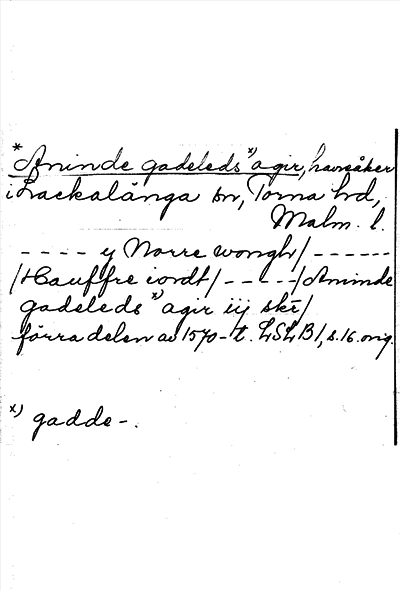 *Aninde gadeleds x) agir, havreåker
i Lackalänga sn, Torna hd,
Malm. l.
---- y Norre wongh/ ------
/Hauffre iordt/ -----/Aninde
gadeleds x) agir iij skr/
förra delen av 1570-t. LSLB1, s.16. orig.
x) gadde-.